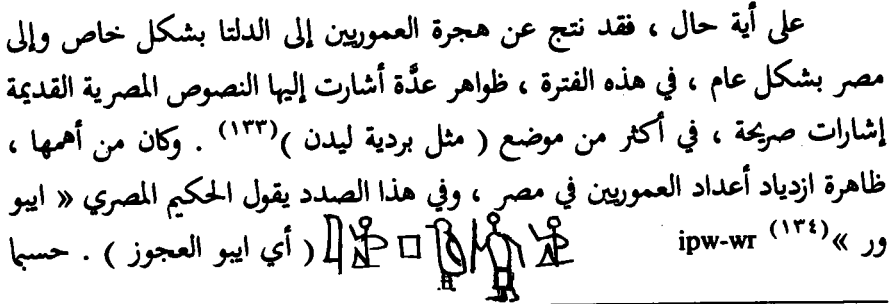 على أية حال ، فقد نتج عن هجرة العموريين إلى الدلتا بشكل خاص وإلى
مصر بشكل عام ، في هذه الفترة ، ظواهر عدَّة أشارت إليها النصوص المصرية القديمة
إشارات صريحة ، في أكثر من موضع ( مثل بردية ليدن )(١٣٣) . وكان من أهمها ،
ظاهرة ازدياد أعداد العموريين في مصر ، وفي هذا الصدد يقول الحكيم المصري « ايبو
ور »(١٣٤) ipw-wr ( أي ايبو العجوز ) . حسبما